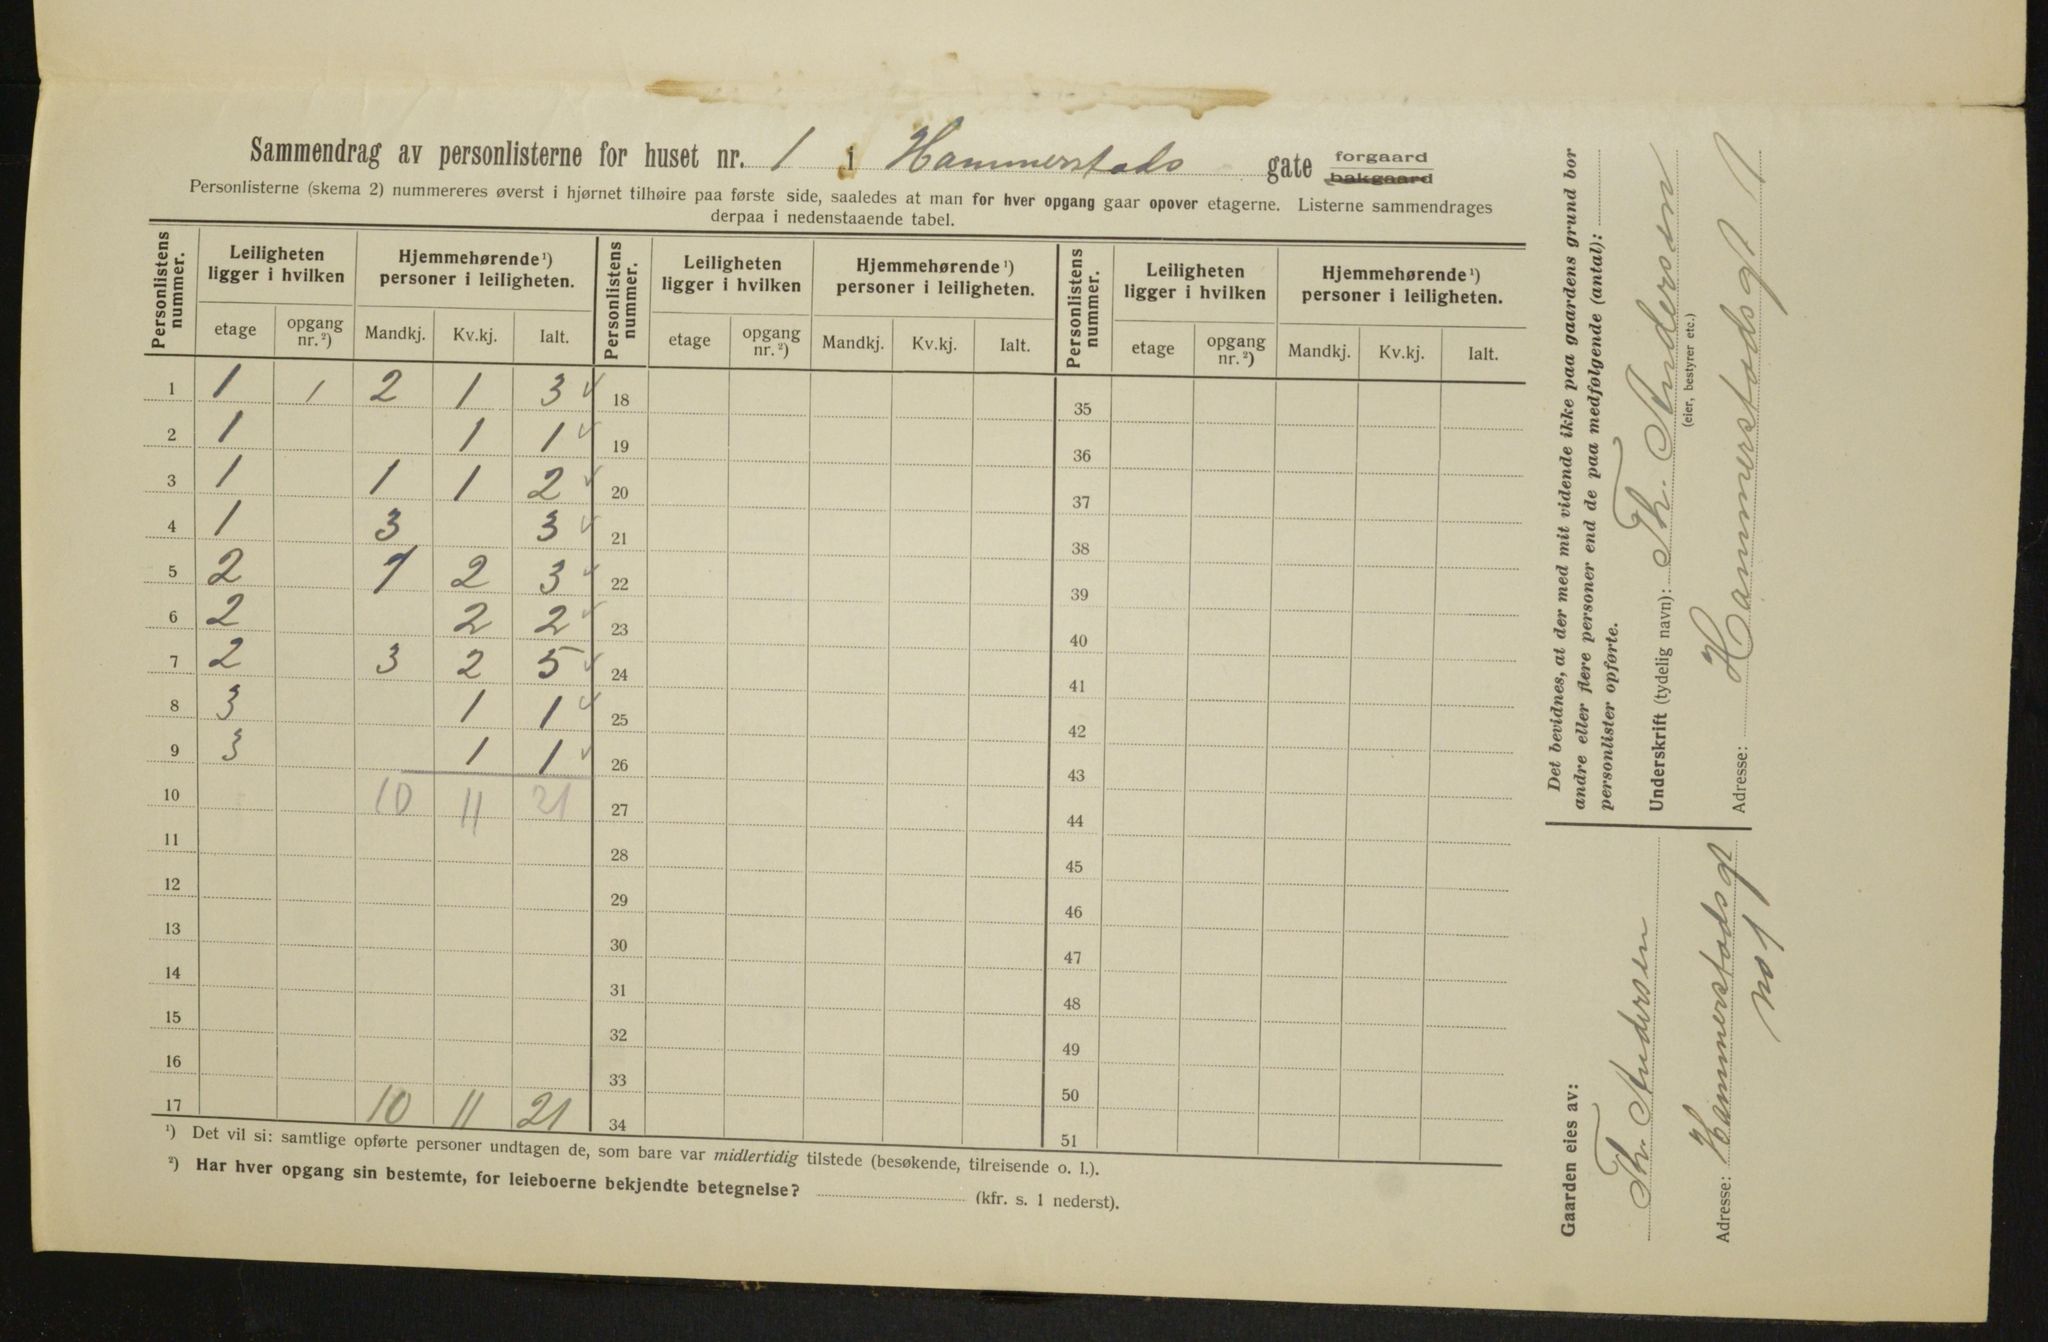 Sammendrag av personlisterne for huset nr. 1 i Hammerstads gate forgaard bakgaard
Personlisterne (skema 2) nummereres øverst i hjørnet tilhøire paa første side, saaledes at man for hver opgang gaar opover etagerne. Listerne sammendrages
derpaa i nedenstaaende tabel.
Personlistens nummer. Leiligheten ligger i hvilken Hjemmehørende ¹) personer i leiligheten. Personlistens nummer. Leiligheten ligger i hvilken Hjemmehørende ¹) personer i leiligheten. Personlistens nummer. Leiligheten ligger i hvilken Hjemmehørende ¹) personer i leiligheten.
etage opgang nr. ²) Mandkj. Kv.kj. Ialt. etage opgang nr. ²) Mandkj. Kv.kj. Ialt. etage opgang nr. ²) Mandkj. Kv.kj. Ialt.
1 1 1 2 1 3 ✓ 18 35
2 1 1 1 ✓ 19 36
3 1 1 1 2 ✓ 20 37
4 1 3 3 ✓ 21 38
5 2 1 2 3 ✓ 22 39
6 2 2 2 ✓ 23 40
7 2 3 2 5 ✓ 24 41
8 3 1 1 ✓ 25 42
9 3 1 1 ✓ 26 43
10 10 11 21 27 44
11 28 45
12 29 46
13 30 47
14 31 48
15 32 49
16 33 50
17 10 11 21 34 51
¹) Det vil si: samtlige opførte personer undtagen de, som bare var midlertidig tilstede (besøkende, tilreisende o. l.).
²) Har hver opgang sin bestemte, for leieboerne bekjendte betegnelse? (kfr. s. 1 nederst).
Det bevidnes, at der med mit vidende ikke paa gaardens grund bor
andre eller flere personer end de paa medfølgende (antal):
personlister opførte.
Underskrift (tydelig navn): Th. Andersen
(eier, bestyrer etc.)
Adresse: Hammerstadsgt 1
Gaarden eies av:
Th. Andersen
Adresse: Hammerstadsgt
no 1